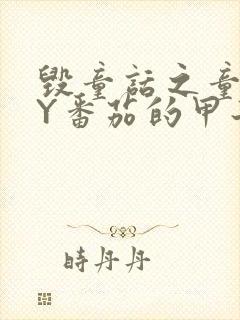 毁童话之童
Y番茄的甲
時丹丹